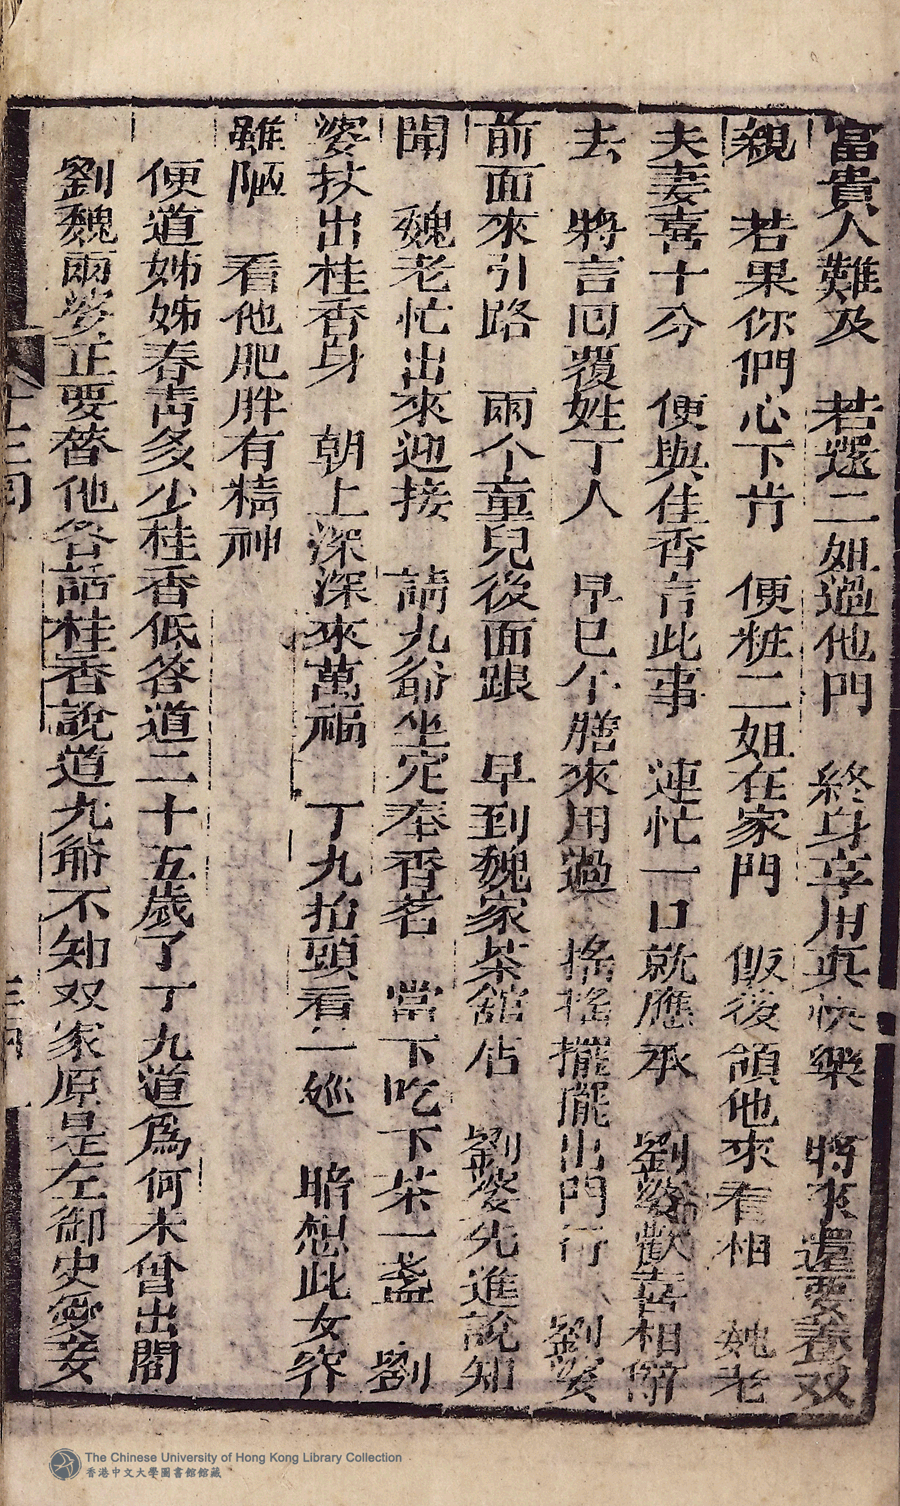 富貴人難及　若還二姐過他門　終身享用真快樂　將來還要養双
親　若果你們心下肯　便粧二姐在家門　飯後領他來看相　魏老
夫妻喜十分　便與佳香言此事　連忙一口就應承　劉婆歡喜相辭
去　將言囘覆姓丁人　早巳午膳來用過　搖搖擺擺出門行　劉婆
前面來引路　兩个童兒後面跟　早到魏家茶舘店　劉婆先進說知
聞　魏老忙出來迎接　請九爺坐定奉香茗　當下吃下茶一盞　劉
婆扶出桂香身　朝上深深來萬福　丁九抬頭看一廵　暗想此女容
雖陋　看他肥胖有精神
便道姊姊春青多少桂香低答道二十五歲了丁九道爲何未曾出閣
劉魏兩婆正要替他答話桂香說道九爺不知双家原是左御史愛妾
十三囘
The Chinese University of Hong Kong Library Collection
香港中文大學圖書館館藏